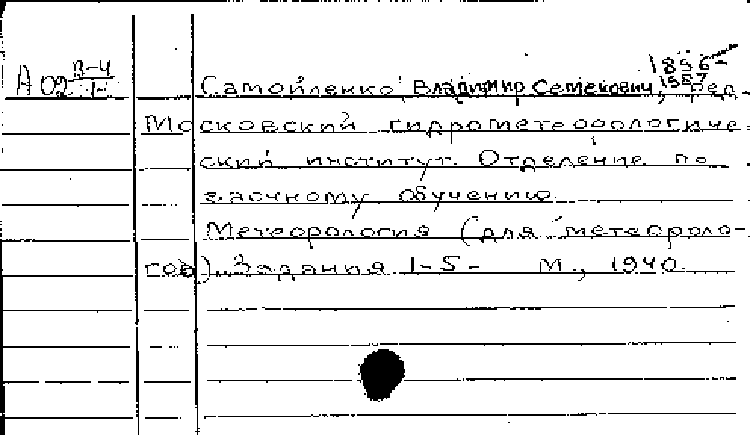 1896-
А 09 В-4 Самойленко, Владимир Семенович, 1587 ред.
1-
Московский гидрометеорологиче-
ский институт. Отделение по
заочному обучению
Метеорология (для метеороло-
гов). Задания 1-5- М., 1940